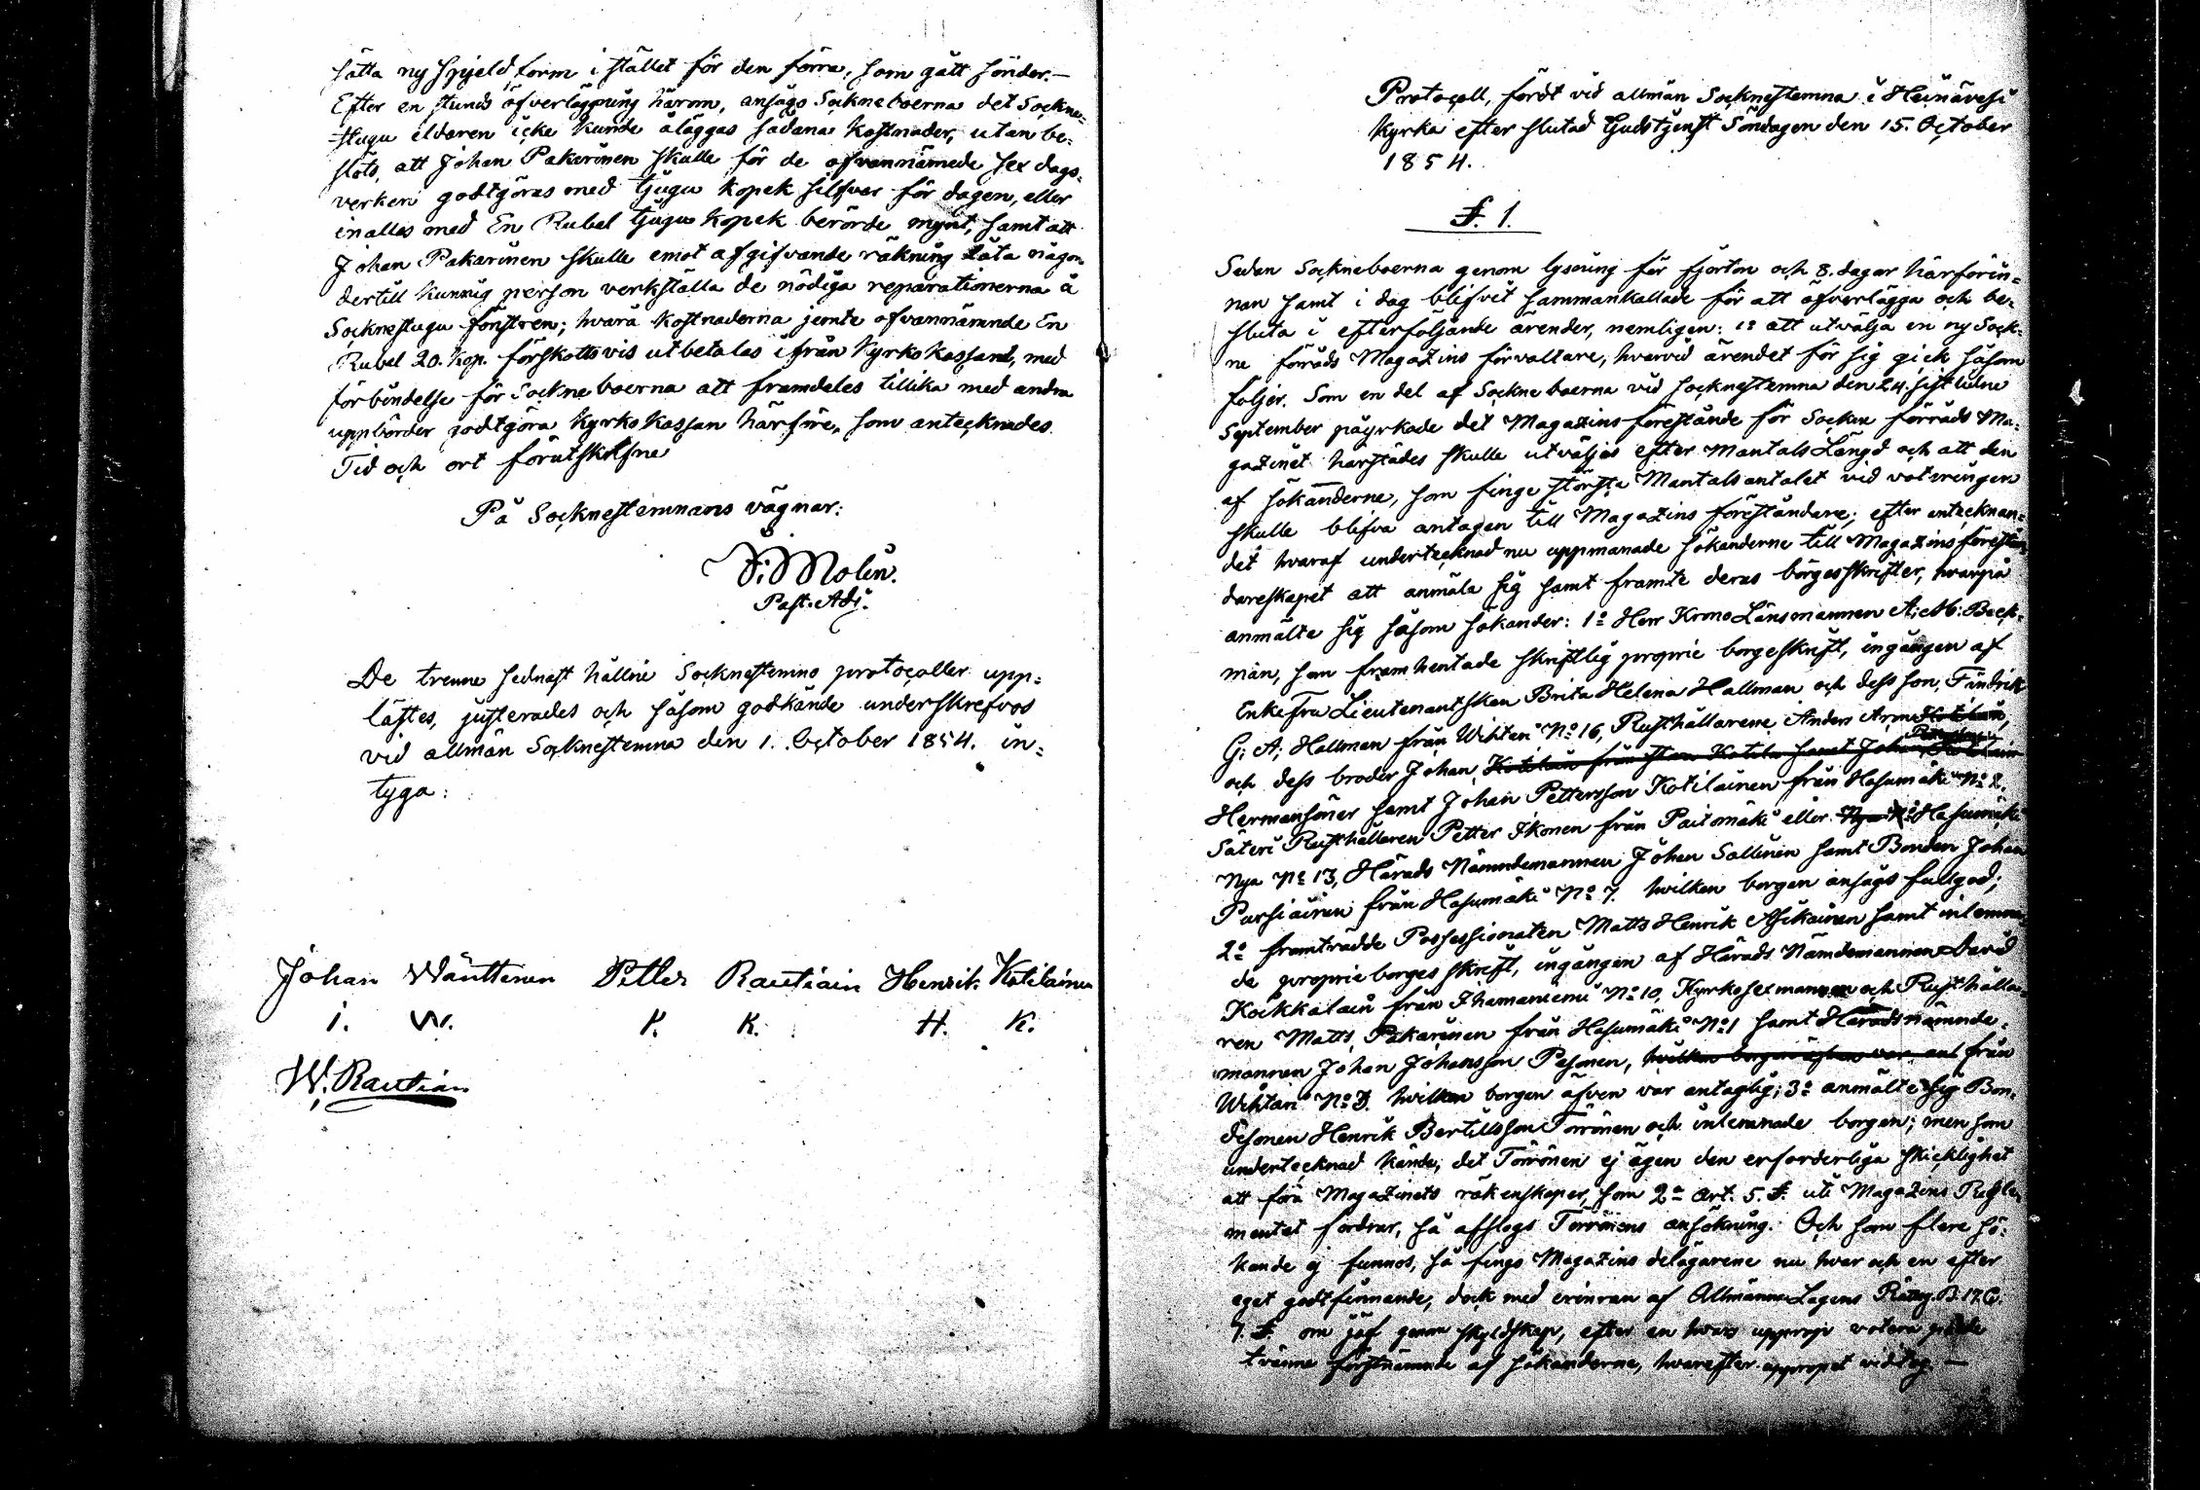 sätta ny spjeld form i stället för den förra, som gått sönder.—
Efter en stunds öfverläggning härom, ansågs Sockneboerna det Sockne-
stugu eldaren icke kunde åläggas sådana kostnader, utan be-
slöts, att Johan Pakarinen skulle för de ofvannämnde sex dags-
verken godtgöras med tjugu kopek silfver för dagen, eller
inalles med En Rubel tjugu kopek berörde mynt, samt att
Johan Pakarinen skulle emot afgifvande räkning låta någon
dertill kunnig person verkställa de nödiga reparationerna å
Socknestugu fönstren; hvara kostnaderna jemte ofvannämnde En
Rubel 20. kop. förskottsvis utbetalas ifrån Kyrko kassan, med
förbindelse för Sockne boerna att framdeles tillika med andra
uppbörder godtgöra Kyrko kassan härföre, som antecknades.
Tid och ort förutskrifne
På Socknestemmans vägnar:
Molin.
Past. Adj.
De trenne sednast hållne Socknestemmo protocoller upp-
lästes, justerades och såsom godkände underskrefvos
vid allmän Socknestemma den 1. October 1854. in-
tyga:
Johan Wänttinen Petter Rautiain Henrik Kotilainen
I. W. P. R. H. K.
W. Rautiain
Protocoll, fördt vid allmän Socknestemma i Heinävesi
Kyrka efter slutad Gudstjenst Söndagen den 15. October
1854.
§. 1.
Sedan Sockneboerna genom lysning för fjorton och 8. dagar härförin-
nan samt i dag blifvit sammankallade för att öfverlägga och be-
sluta i efterföljande ärender, nemligen: 1º att utvälja en ny Sock-
ne förråds Magazins förvaltare, hvarvid ärendet för sig gick såsom
följer. Som en del af Sockne boerna vid socknestemma den 24. sistlidne
September påyrkade det Magazinsförestånde för Socken förråds Ma-
gazinet härstädes skulle utväljas efter Mantals Längd och att den
af sökanderne, som finge största Mantalsantalet vid voteringen
skulle blifva antagen till Magazins föreståndare; efter antecknan-
det hvaraf undertecknad nu uppmanade sökanderne till Magazins förestån
dareskapet att anmäla sig samt framte deras borgesskrifter, hvarpå
anmälte sig såsom sökander: 1º Herr Krono Länsmannen A: M: Beck-
man, som framhentade skriftlig proprie borgeskrift, ingången af
Enkefru Lieutenantskan Brita Helena Hallman och dess son, Fändrik
G: A: Hallman från Wihtari Nº 16, Rusthållarene Anders Kotilain,
och dess broder Johan Kotilain från Kotila samt Johan
Hermansöner samt Johan Pettersson Kotilainen från Hasumäki Nº 2.
Säteri Rusthållaren Petter Ikonen från Paitomäki eller Hasumäki
Nya Nº 13, Härads Nämndemannen Johan Sallinen samt Bonden Johan
Parsiainen från Hasumäki Nº 7. hvilken borgen ansågs fullgod;
2º framträdde Possessionaten Matts Henrik Asikainen samt inlemna
de proprieborges skrift, ingången af Härads Nämdemannen David
Kockkalain från Ihamaniemi Nº 10, Kyrkosexmannen och Rusthålla-
ren Matts Pakarinen från Hasumäki Nº 1 samt Häradsnämnde-
mannen Johan Johansson Pesonen, hvilken borgen äfven var ant från
Wihtari Nº 3. hvilken borgen äfven var antaglig; 3º anmälte sig Bon-
desonen Henrik Bertillsson Törrönen och inlemnade borgen; men som
undertecknad kände, det Törrönen ej ägen den erforderliga skicklighet
att föra Magazinets räkenskaper, som 2ª Art. 5. §. uti Magazins Regle-
mentet fordrar, så afslogs Törrönens ansökning. Och som flere sö-
kande ej funnos, så fingo Magazins delägarene nu hvar och en efter
eget godtfinnande, dock med erinran af Allmänna Lagens Rätteg. B. 17. C.
7. §. om jäf genom skyldskap, efter en hvars upprop votera på de
tvänne förstnämnde af sökanderne, hvarefter uppropet vidtog. —